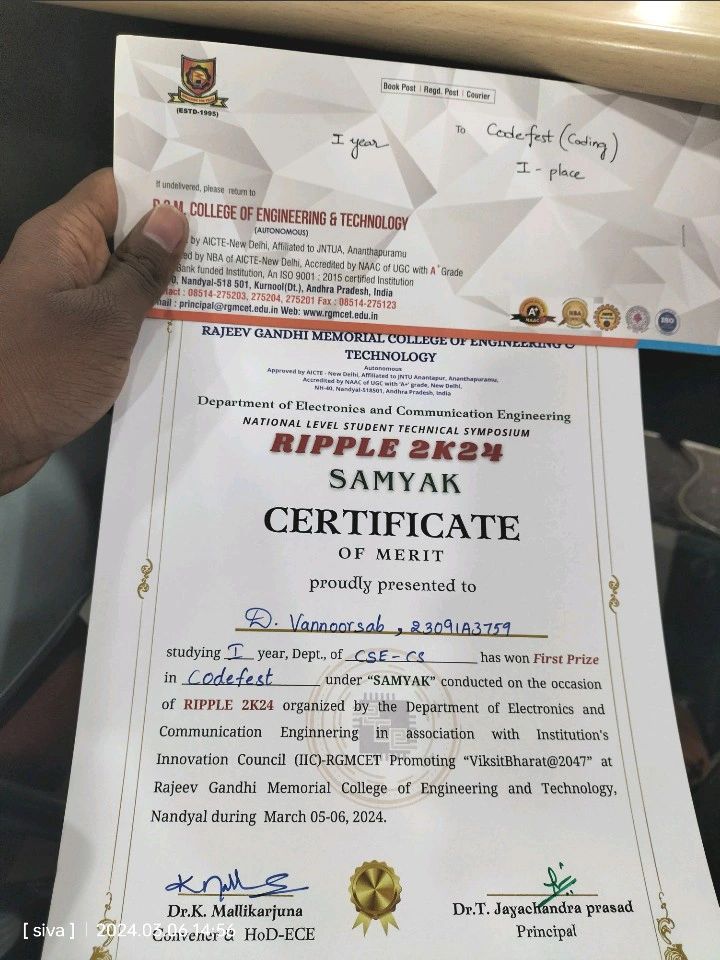 (ESTD-1995)
Book Post | Regd. Post | Courier
I year
To Codefest (Coding)
I - place
If undelivered, please return to
COLLEGE OF ENGINEERING & TECHNOLOGY
(AUTONOMOUS)
by AICTE-New Delhi, Affiliated to JNTUA, Ananthapuramu
by NBA of AICTE-New Delhi, Accredited by NAAC of UGC with A+ Grade
Bank funded Institution, An ISO 9001 : 2015 certified Institution
Nandyal-518 501, Kurnool(Dt.), Andhra Pradesh, India
: 08514-275203, 275204, 275201 Fax : 08514-275123
: principal@rgmcet.edu.in Web: www.rgmcet.edu.in
A+
NAAC
NBA
ISO
RAJEEV GANDHI MEMORIAL COLLEGE OF ENGINEERING &
TECHNOLOGY
Autonomous
Approved by AICTE - New Delhi, Affiliated to JNTU Anantapur, Ananthapuramu,
Accredited by NAAC of UGC with 'A+' grade, New Delhi,
NH-40, Nandyal-518501, Andhra Pradesh, India
Department of Electronics and Communication Engineering
NATIONAL LEVEL STUDENT TECHNICAL SYMPOSIUM
RIPPLE 2K24
SAMYAK
CERTIFICATE
OF MERIT
proudly presented to
D. Vannoorsab, 23091A3759
studying I year, Dept., of CSE-CS has won First Prize
in Codefest under “SAMYAK” conducted on the occasion
of RIPPLE 2K24 organized by the Department of Electronics and
Communication Enginnering in association with Institution's
Innovation Council (IIC)-RGMCET Promoting “ViksitBharat@2047” at
Rajeev Gandhi Memorial College of Engineering and Technology,
Nandyal during March 05-06, 2024.
Dr.K. Mallikarjuna Dr.T. Jayachandra prasad
Convener & HoD-ECE Principal
[ siva ] | 2024.03.06 14:56